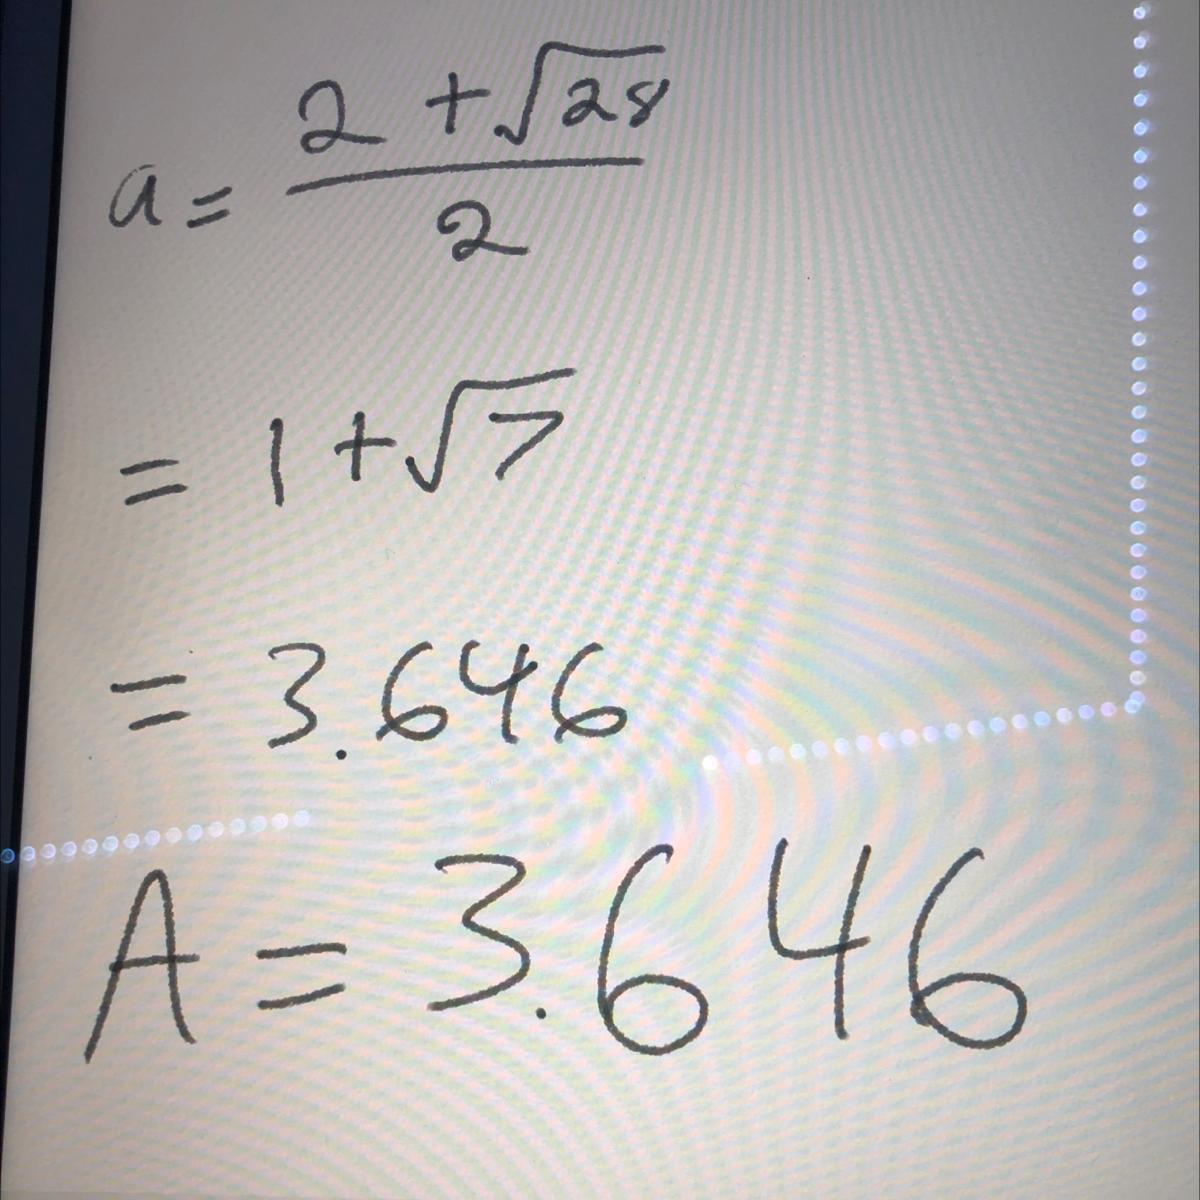 a = (2 + √28) / 2
= 1 + √7
= 3.646
A = 3.646